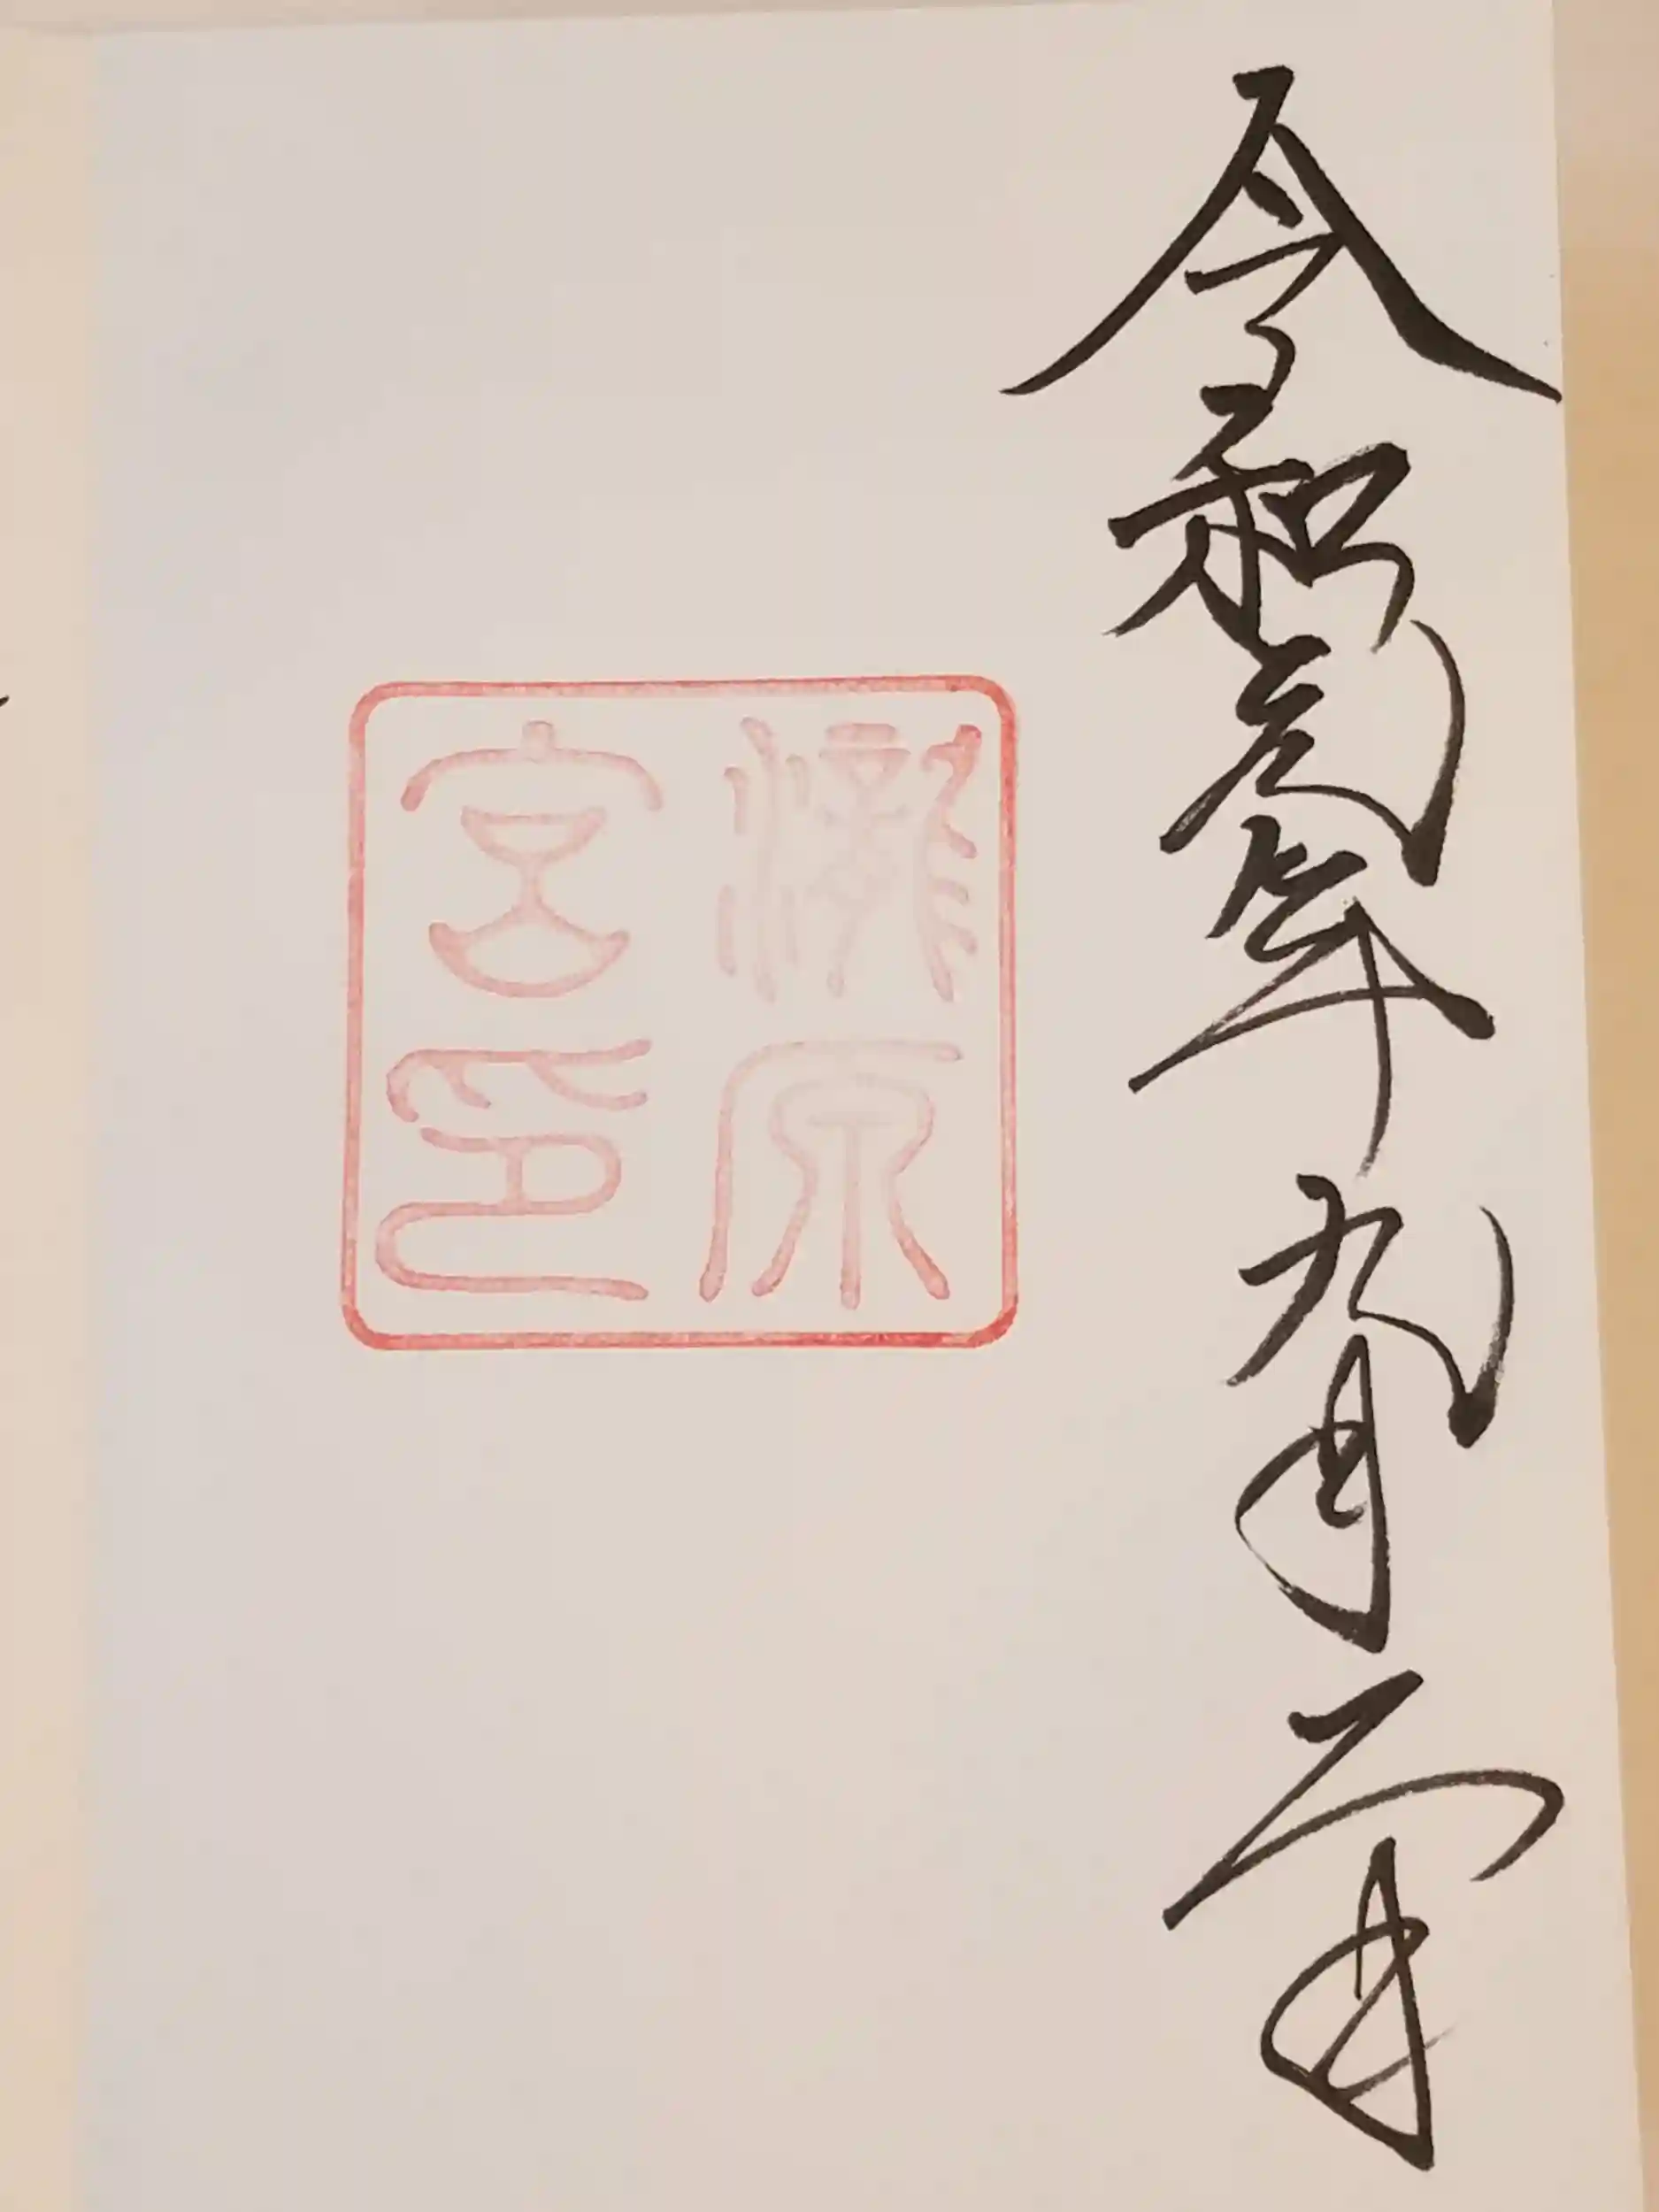 令和元年九月二日
瀧原
宮印